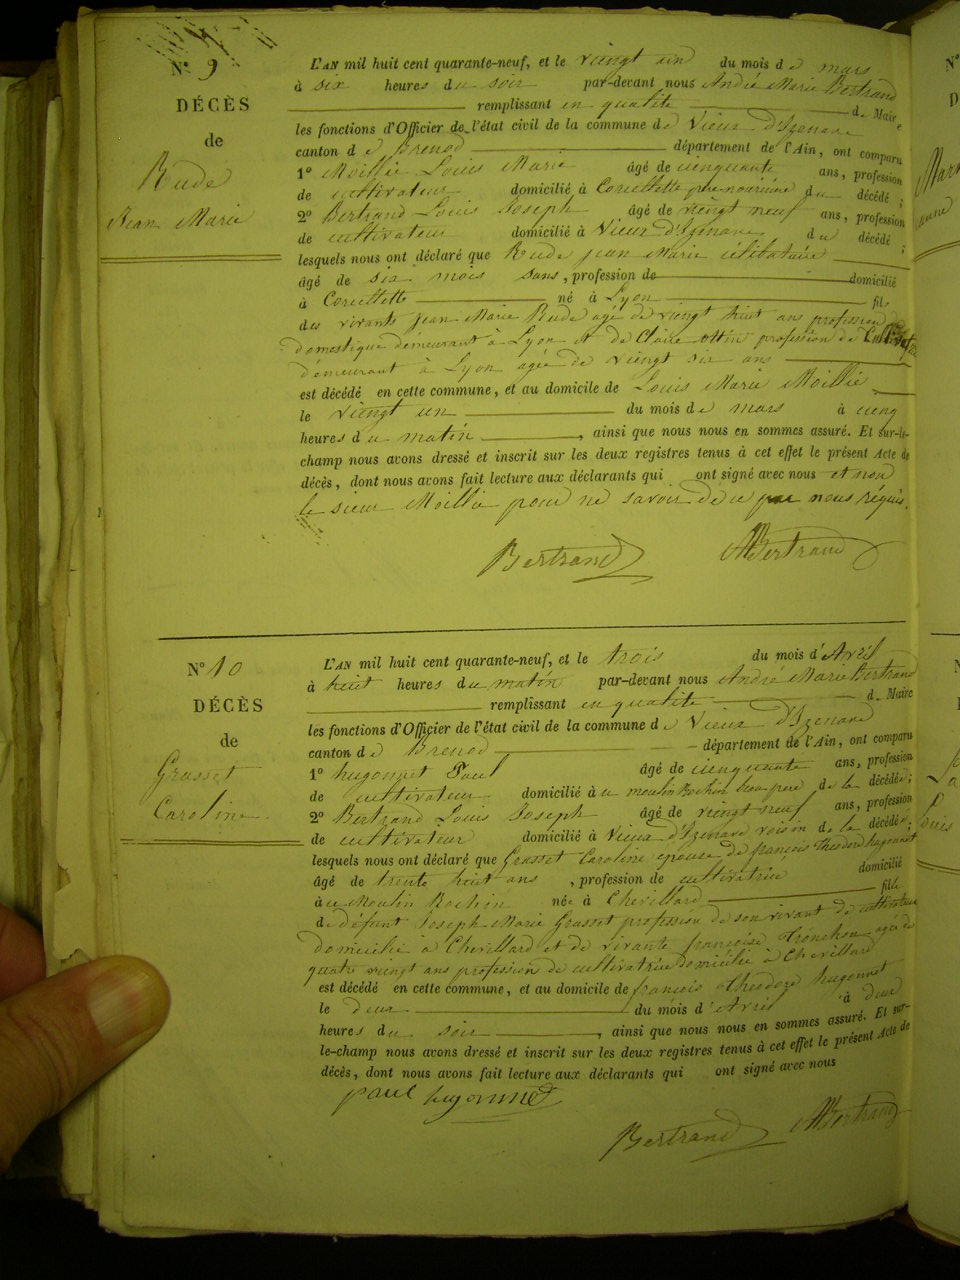 N° 9
DÉCÈS
de
Rude
Jean Marie
L'AN mil huit cent quarante-neuf, et le vingt un du mois de mars
à six heures du soir par-devant nous André Marie Bertrand
remplissant en qualité de Maire
les fonctions d'Officier de l'état civil de la commune de Vieux d'Izenave
canton de Brenod département de l'Ain, ont comparu
1° Moillie Louis Marie âgé de cinquante ans, profession
de cultivateur domicilié à Corcellette père nouricier du décédé ;
2° Bertrand Louis Joseph âgé de vingt neuf ans, profession
de cultivateur domicilié à Vieux d'Izenave du décédé ;
lesquels nous ont déclaré que Rude jean Marie célibataire
âgé de six mois sans , profession de domicilié
à Corcellette né à Lyon fils
des vivants jean Marie Rude agé de vingt huit ans profession de
domestique demeurant à Lyon et de Claire profession de
demeurant à Lyon agée de vingt six ans
est décédé en cette commune, et au domicile de Louis Marie Moillie
le vingt un du mois de mars à cinq
heures du matin , ainsi que nous nous en sommes assuré. Et sur-le-
champ nous avons dressé et inscrit sur les deux registres tenus à cet effet le présent Acte de
décès, dont nous avons fait lecture aux déclarants qui ont signé avec nous et non
le sieur Moillie pour ne savoir de ce par nous réquis.
Bertrand AMBertrand
N° 10
DÉCÈS
de
Grasset
Caroline
L'AN mil huit cent quarante-neuf, et le trois du mois d'Avril
à huit heures du matin par-devant nous André Marie Bertrand
remplissant en qualité de Maire
les fonctions d'Officier de l'état civil de la commune de Vieux d'Izenave
canton de Brenod département de l'Ain, ont comparu
1° hugonnet Paul âgé de cinquante ans, profession
de cultivateur domicilié à u moulin Rochin beau pere de la décédée ;
2° Bertrand Louis Joseph âgé de vingt neuf ans, profession
de cultivateur domicilié à Vieux d'Izenave voisin de la décédée ;
lesquels nous ont déclaré que Grasset Caroline épouse de françois Theodore hugonnet
âgé de trente huit ans , profession de cultivatrice domicilié
à u Moulin Rochin née à Chevillard fille
de défunt Joseph Marie Grasset profession de son vivant de cultivateur
domicilié à Chevillard et de vivante françoise Tronchon agée de
quatre vingt ans profession de cultivatrice domicilié à Chevillard
est décédé en cette commune, et au domicile de françois theodore hugonnet
le deux du mois d'Avril à deux
heures du soir , ainsi que nous nous en sommes assuré. Et sur-
le-champ nous avons dressé et inscrit sur les deux registres tenus à cet effet le présent Acte de
décès, dont nous avons fait lecture aux déclarants qui ont signé avec nous
paul hugonnet
Bertrand AMBertrand